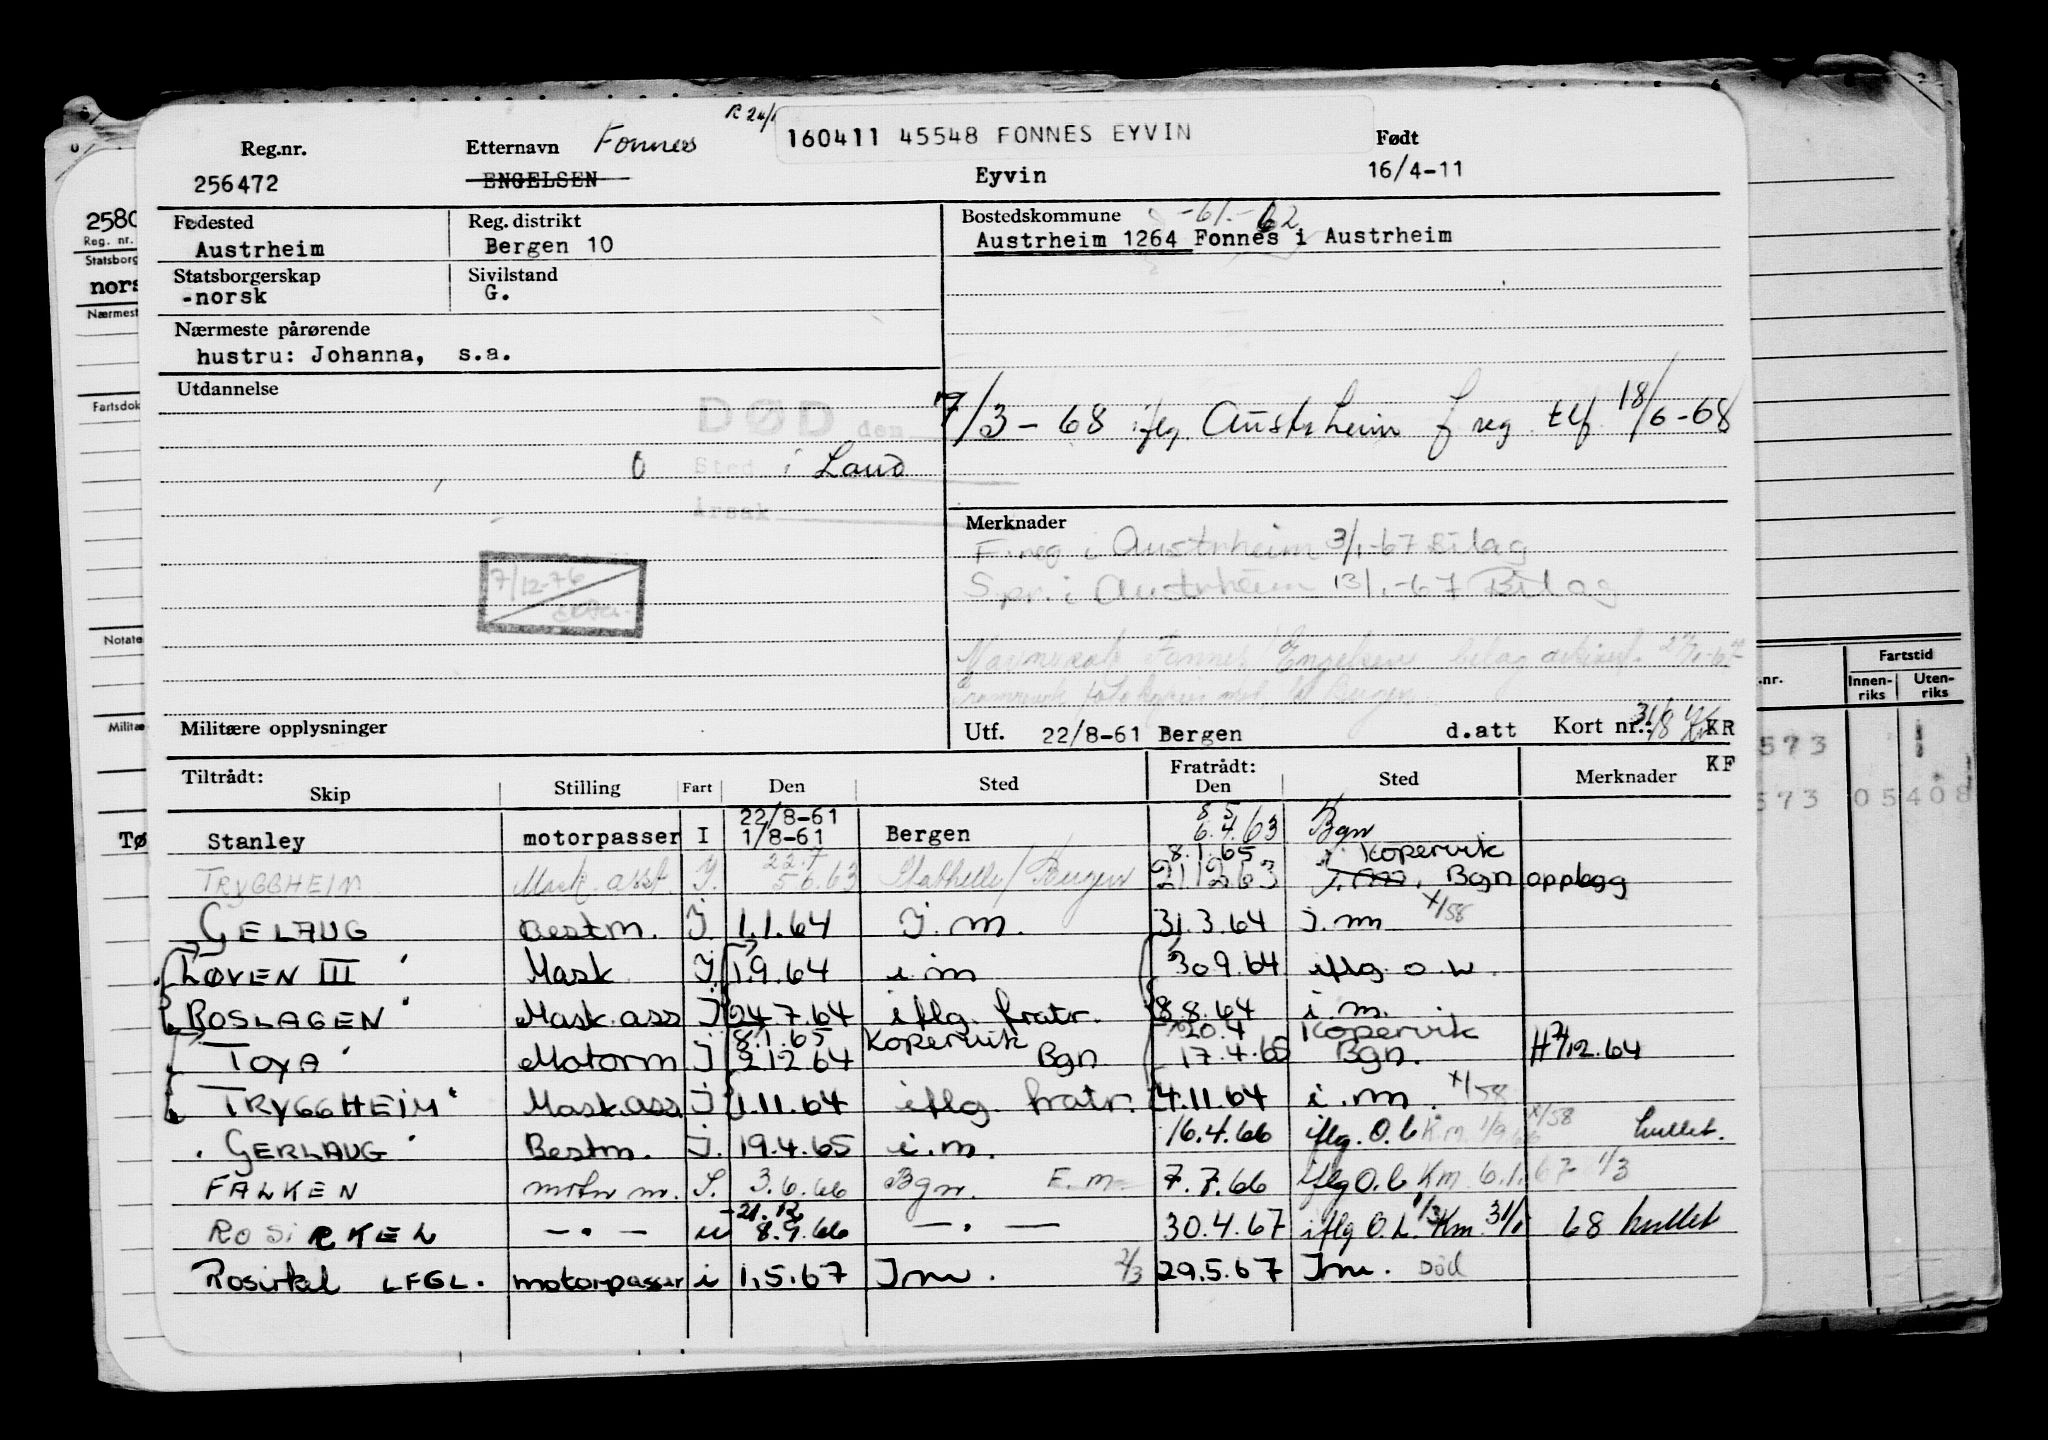 R 24/
160411 45548 FONNES EYVIN
Reg.nr. Etternavn Fonnes Født
256472 ENGELSEN Eyvin 16/4-11
Fødested Reg. distrikt Bostedskommune -61.-62
Austrheim Bergen 10 Austrheim 1264 Fonnes i Austrheim
Statsborgerskap Sivilstand
-norsk G.
Nærmeste pårørende
hustru: Johanna, s.a.
Utdannelse
DØD den 7/3-68 iflg. Austrheim f reg. tlf 18/6-68
0 Sted i Land
Årsak
Merknader
F.reg i Austrheim 3/1-67 Bilag
Spr. i Austrheim 13/1.-67 Bilag
7/12-76
Fonnes / Engelsen
Militære opplysninger Utf. 22/8-61 Bergen d.att Kort nr.: 31/8 KR
KF
Tiltrådt: Fratrådt:
Skip Stilling Fart Den Sted Den Sted Merknader
22/8-61 8 5
Stanley motorpasser I 1/8-61 Bergen 6.4.63 Bgn
22.7 8.1.65 Kopervik
TRYGGHEIM Mask. asst J. 5 6.63 Stathelle / Bergen 21 12 63 Bgn opplagg
GELAUG Bestm. J. 1.1.64 J. m. 31.3.64 J. m x/58
LØVEN III Mask J. 1.9.64 i m 30 9.64 iflg. o. b.
ROSLAGEN Mask. ass J 24.7.64 iflg. fratr. 8.8.64 i. m.
8.1.65 Kopervik 20.4 Kopervik
TOYA Motorm J 2.12.64 Bgn 17.4.65 Bgn. H 2/12.64
TRYGGHEIM Mask.ass J 1.11.64 iflg. fratr. 4.11.64 i. m. x/58
GERLAUG Bestm. J. 19.4.65 i. m. 16.4.66 iflg. O. b Km. 1/9.66 x/58 hullet.
FALKEN motor m. S. 3.6.66 Bgn. E. m 7.7.66 iflg O. b Km 6.1.67 1/3
-21.12
ROSIRKEL — " — u 8.9.66 — . — 30.4.67 iflg O. b. 1/3 Km. 31/1 68 hullet
Rosirkel LFGL. motorpasser i 1.5.67 Jm. 2/3 29.5.67 Jm. Død
2580
Reg. nr.
Statsborg
nors
Nærmest
Fartsdok
Notate
Militæ
Tø
Fartstid
.nr. Innen-riks Uten-riks
573 1
573 05408